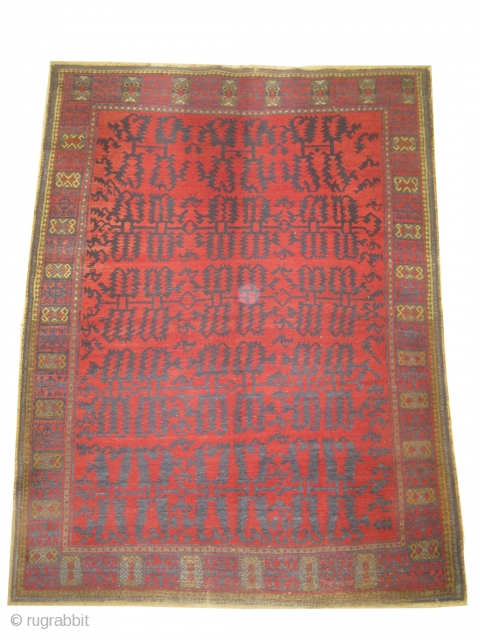 © rugrabbit